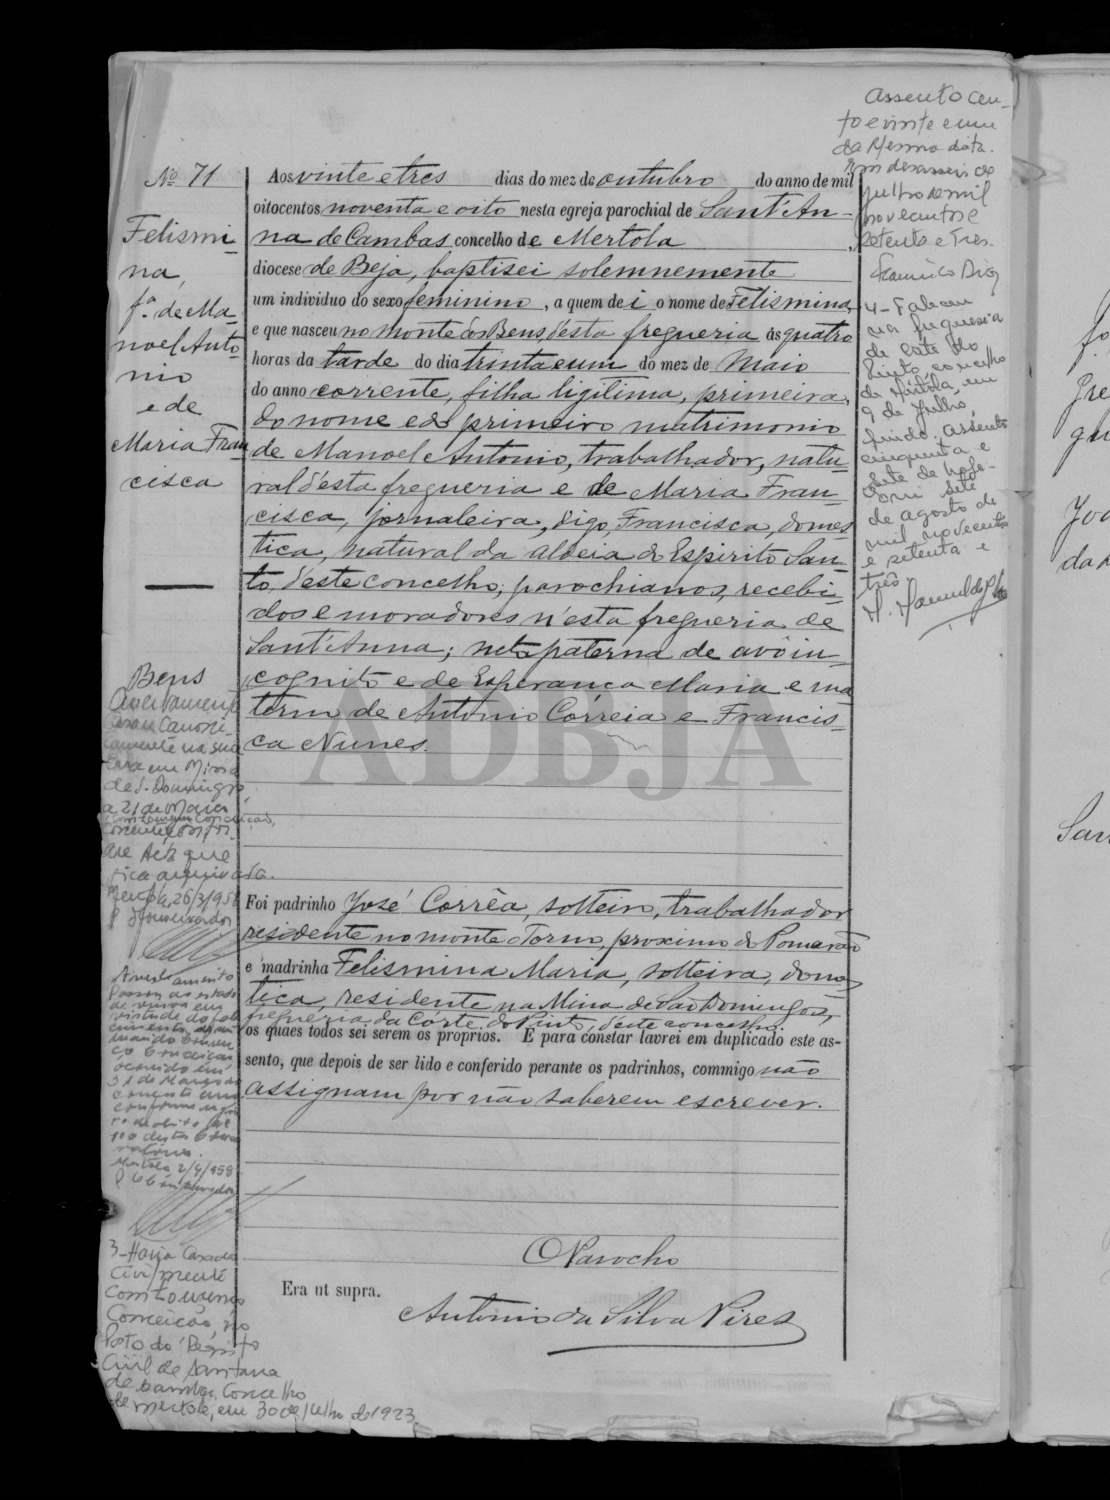 Nº 71
Felismi-
na,
f.ª de Ma-
noel Anto
nio
e de
Maria Fran
cisca
Aos vinte e tres dias do mez de outubro do anno de mil
oitocentos noventa e oito nesta egreja parochial de Sant'An-
na de Cambas concelho de Mertola
diocese de Beja, baptisei solemnemente
um individuo do sexo feminino, a quem dei o nome de Felismina,
e que nasceu no monte dos Bens, d'esta fregueria ás quatro
horas da tarde do dia trinta e um do mez de Maio
do anno corrente, filha ligitima, primeira
do nome e do primeiro matrimonio
de Manoel Antonio, trabalhador, natu-
ral d'esta fregueria e de Maria Fran-
cisca, jornaleira, digo, Francisca, domes
tica, natural da aldeia do Espirito San-
to, d'este concelho; parochianos, recebi-
dos e moradores n'esta fregueria de
Sant'Anna; neta paterna de avô in-
cognito e de Esperança Maria e ma
terna de Antonio Corrêia e Francis-
ca Nunes.
ADBJA
Foi padrinho José Corrêa, solteiro, trabalhador
residente no monte do Torno, proximo do Pomarão
e madrinha Felismina Maria, solteira, domes
tica, residente na Mina de São Domingos,
fregueria da Côrte do Pinto, d'este concelho.
os quaes todos sei serem os proprios. E para constar lavrei em duplicado este as-
sento, que depois de ser lido e conferido perante os padrinhos, commigo não
assignam por não saberem escrever.
O Parocho
Era ut supra.
Antonio da Silva Pires
Bens
Averbamento
Casou Canoni-
camente na sua
casa em Mina
de S. Domingos
a 21 de Março
que
fica arquivada.
Mertola, 26/3/958
Averbamento
Passou ao estado
de viuva em
virtude do fale
cimento
ocorrido em
31 de Março do
corrente ano
Mertola 2/4/958
3-Havia Casado
Civilmente
com Lourenço
Conceição, no
Posto do Registo
Civil de Santana
de Cambas, Concelho
de Mertola, em 30 de Julho de 1923
Assento cen-
to e vinte e um
da mesma data.
Em dezasseis de
Julho de mil
novecentos e
setenta e tres.
4-Faleceu
na freguesia
de Corte do
Pinto, concelho
de Mértola, em
9 de Julho
findo. Assento
cinquenta e
sete de hoje.
Em sete
de agosto de
mil novecentos
e setenta e
três